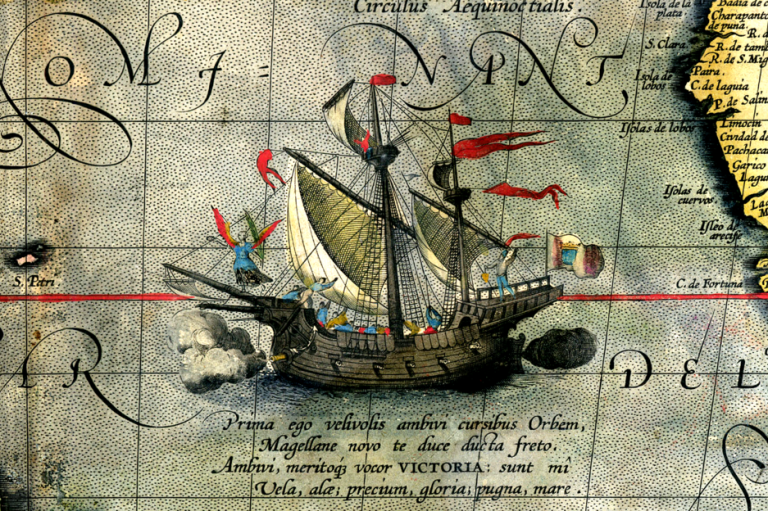 Circulus Aequinoctialis.
OMI=NANT
Isola de la
plata.
Badia de c
Charapanto
de puna.
S. Clara.
R. de tam
R. de S. Mig
Paira.
Isola de
lobos
C. de laguia
P. de Salin
Isolas de lobos
Limocin
Cividad de
Pachaca
Garico
Lagu
Isolas de
cuervos
Isleo de
arecife
S. Petri.
C. de Fortuna
R DEL
Prima ego velivolis ambivi cursibus Orbem,
Magellane novo te duce ducta freto.
Ambivi, meritoq; vocor VICTORIA: sunt mî
Vela, alæ; precium, gloria; pugna, mare.